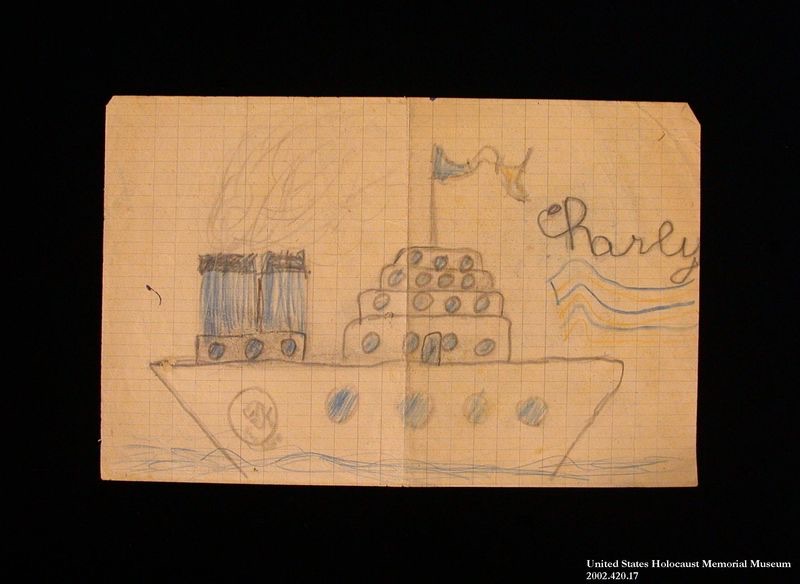 Charly
United States Holocaust Memorial Museum
2002.420.17